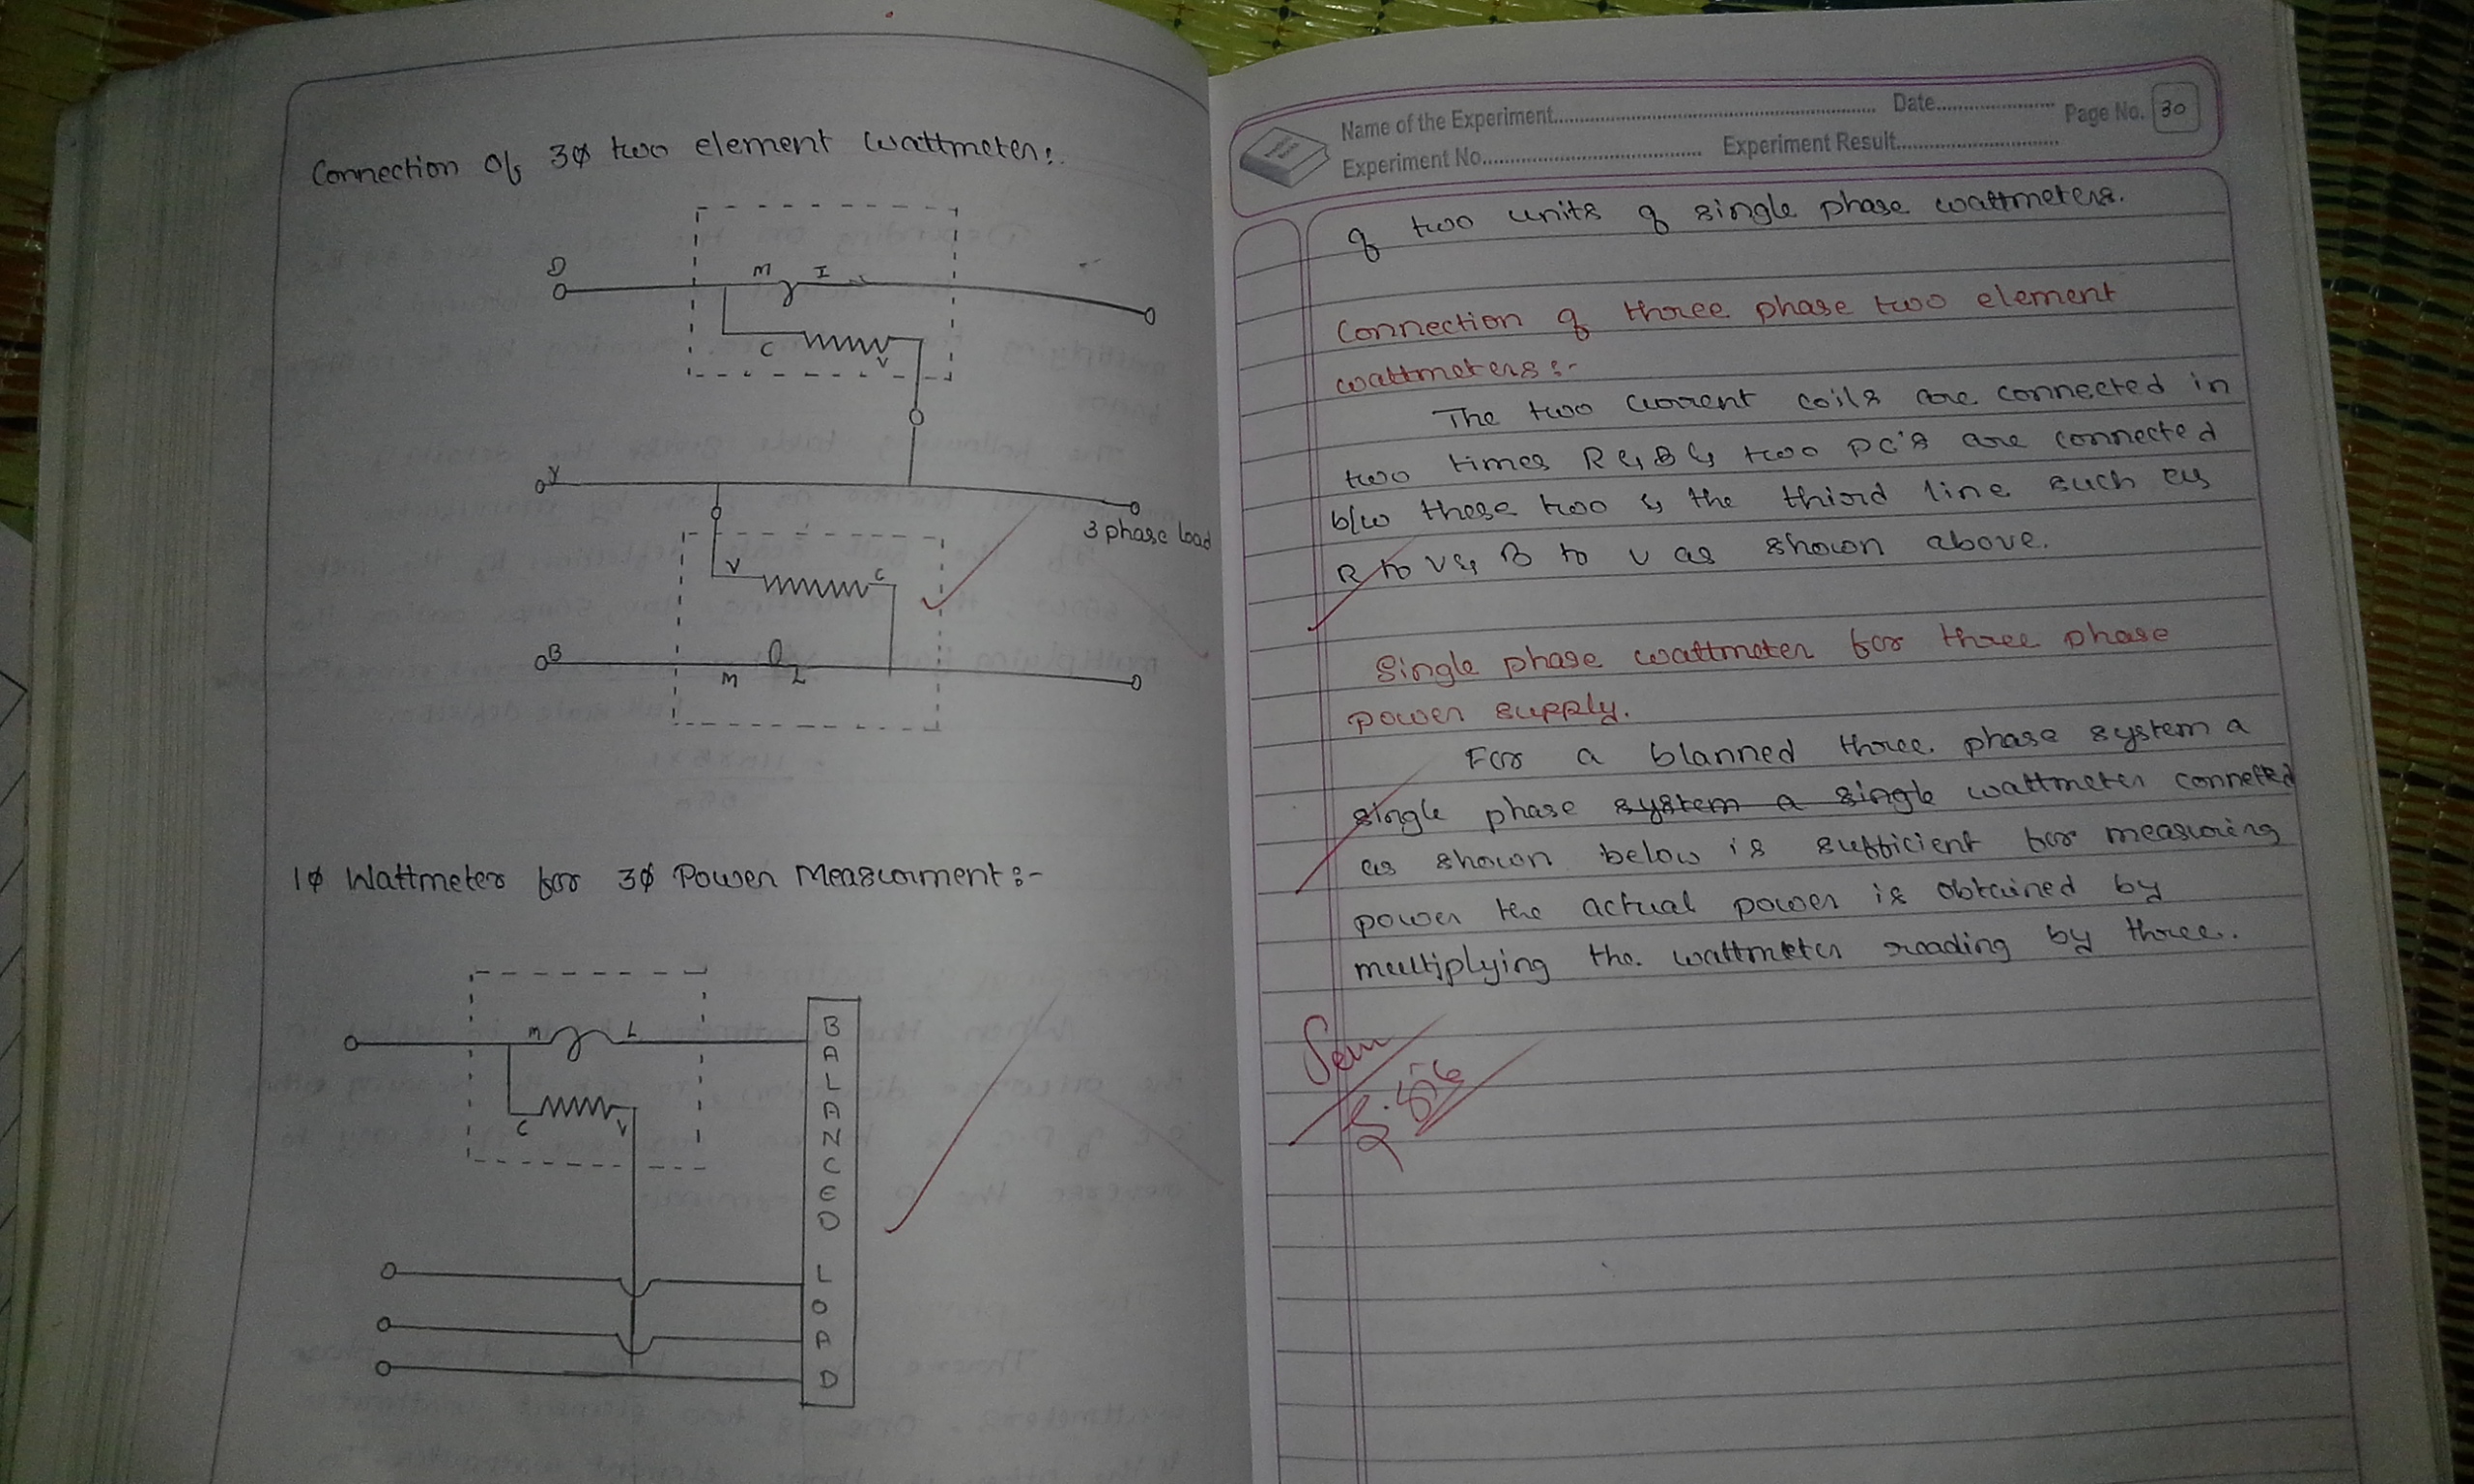 Connection of 3φ two element wattmeter:
M I
C V
Y
3 phase load
V C
B
M L
1φ Wattmeter for 3φ Power Measurment:-
M L
C V
BALANCED LOAD
Name of the Experiment Date Page No. 30
Experiment No. Experiment Result
of two units of single phase wattmeters.
Connection of three phase two element
wattmeters:-
The two current coils are connected in
two times R & B & two PC's are connected
b/w these two & the third line such as
R to V & B to V as shown above.
Single phase wattmeter for three phase
power supply.
For a blanned three phase system a
single phase system a single wattmeter conneted
as shown below is sufficient for measuring
power the actual power is obtained by
multiplying the wattmeter reading by three.